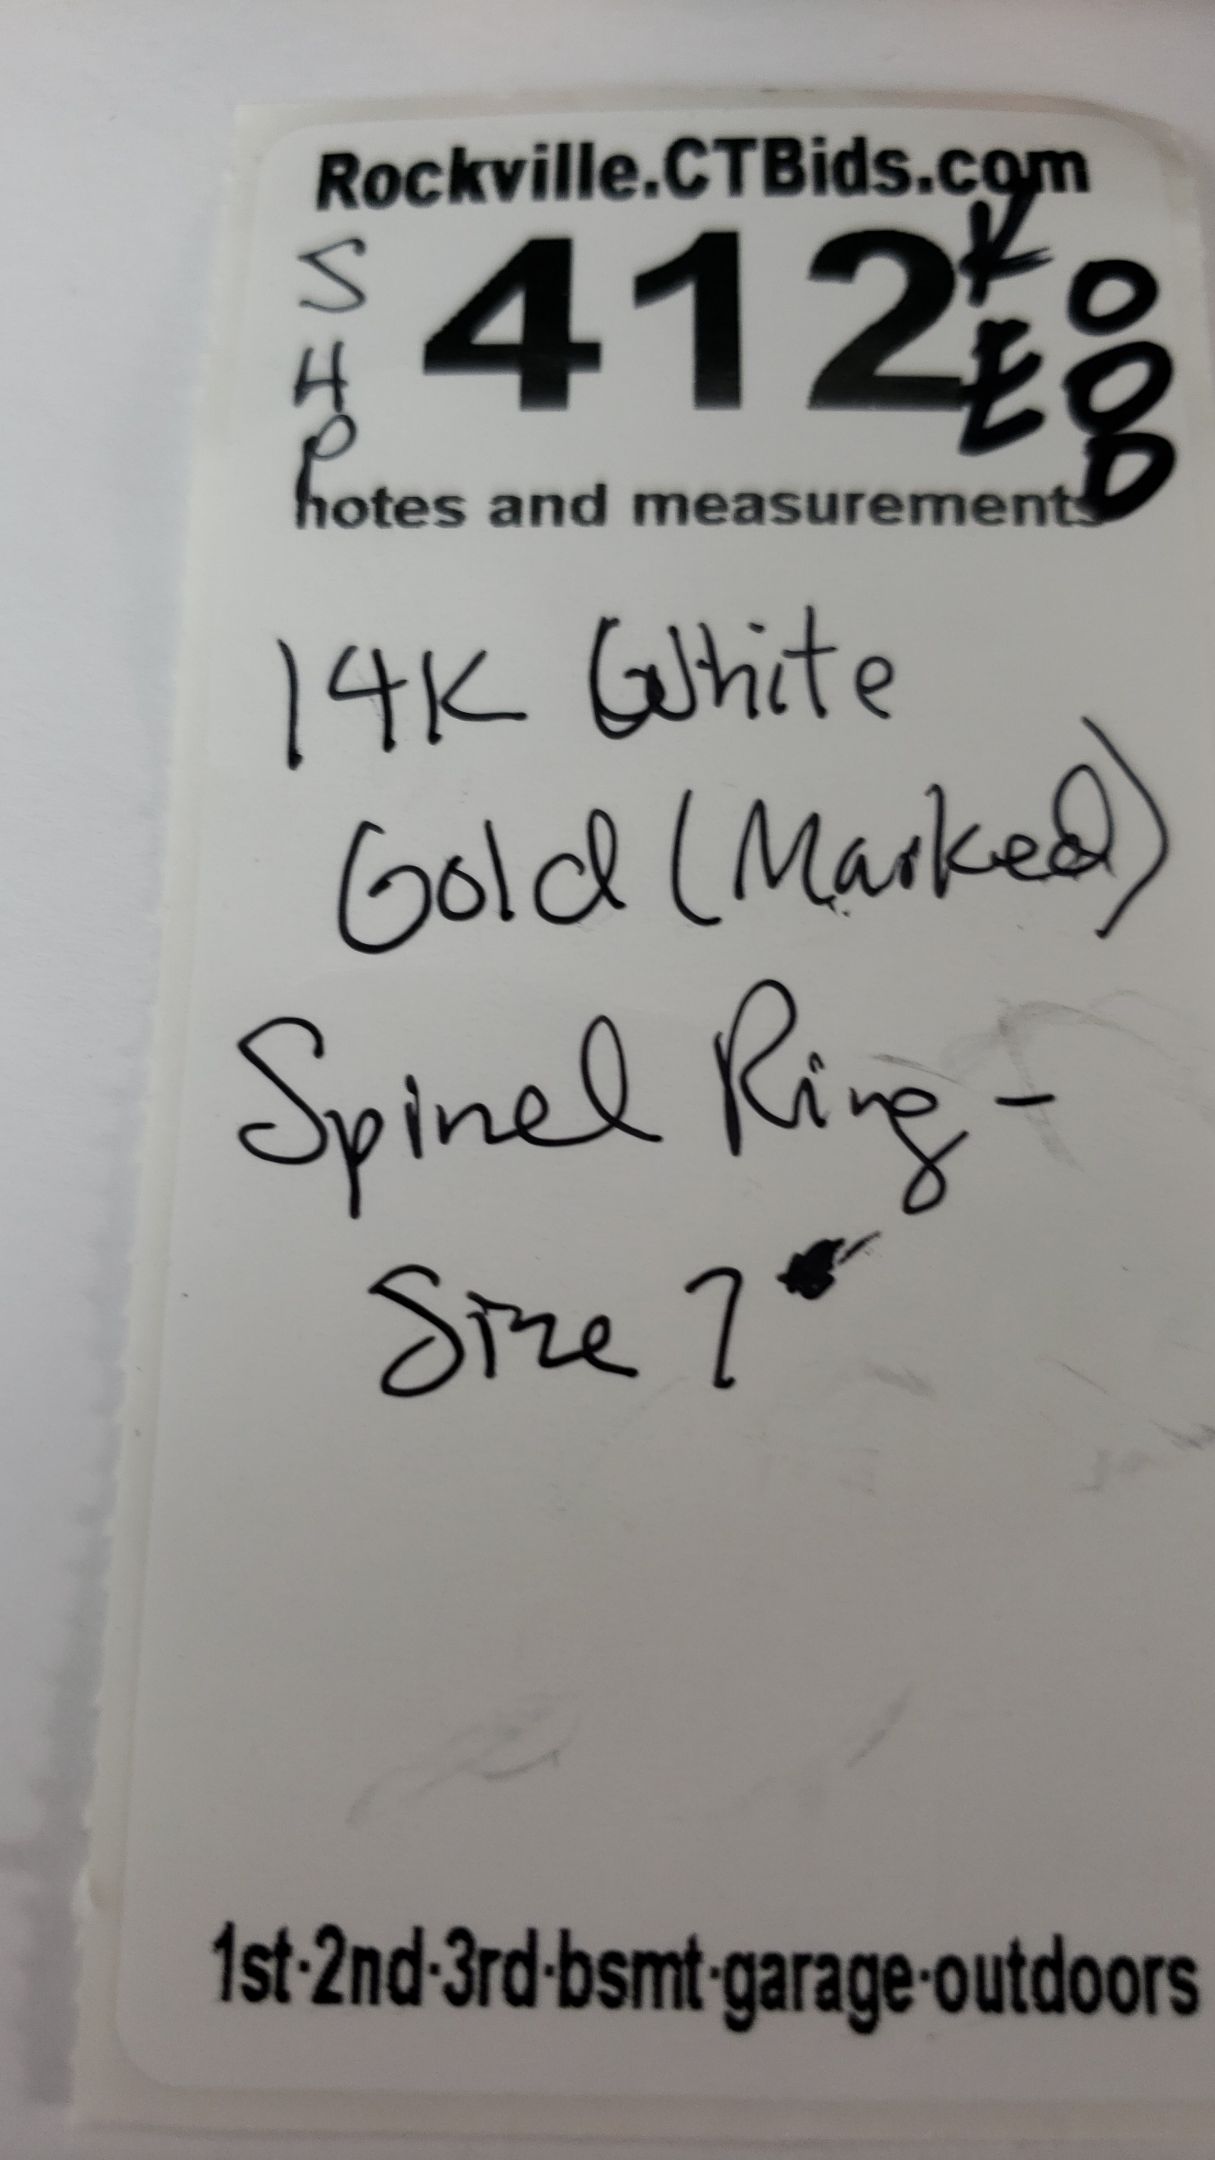 Rockville.CTBids.com
SHP
412
KE
OOD
notes and measurements
14K White
Gold (Marked)
Spinel Ring -
Size 7
1st·2nd·3rd·bsmt·garage·outdoors